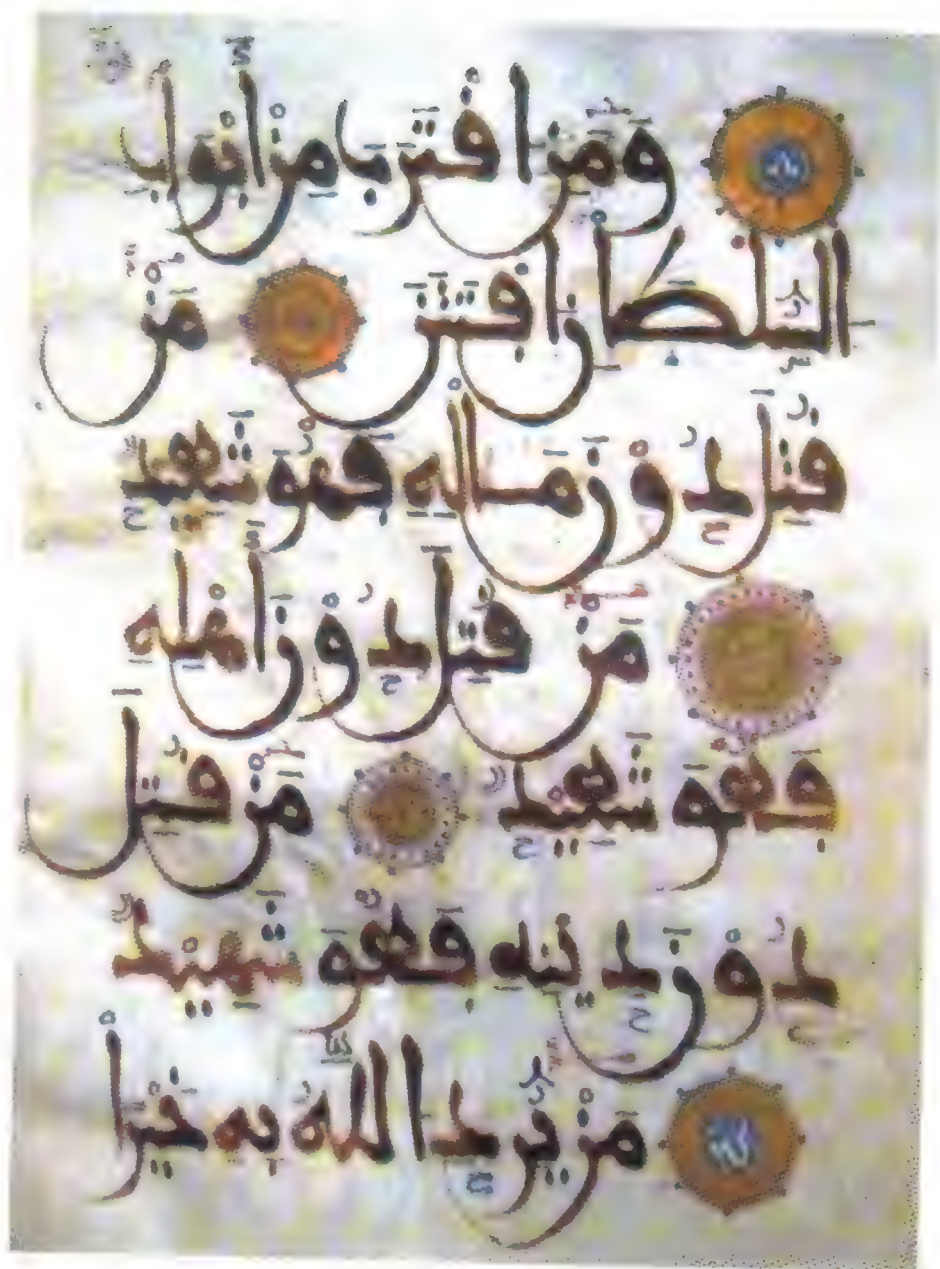 وَمَنِ اقْتَرَبَ مِنْ أَبْوَابِ
السُّلْطَانِ افْتُتِنَ مَنْ
قُتِلَ دُونَ مَالِهِ فَهُوَ شَهِيدٌ
مَنْ قُتِلَ دُونَ أَهْلِهِ
فَهُوَ شَهِيدٌ مَنْ قُتِلَ
دُونَ دِينِهِ فَهُوَ شَهِيدٌ
مَنْ يُرِدِ اللَّهُ بِهِ خَيْرًا